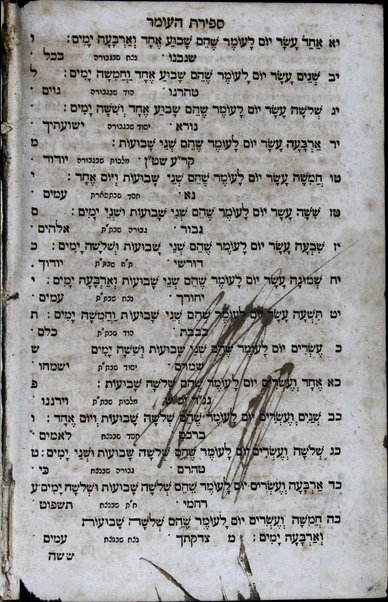 ספירת העומר
יא אַחַד עָשָׂר יוֹם לָעוֹמֶר שֶׁהֵם שָׁבוּעַ אֶחָד וְאַרְבָּעָה יָמִים: ו
שגבנו נצח שבגבורה בבל
יב שְׁנֵים עָשָׂר יוֹם לָעוֹמֶר שֶׁהֵם שָׁבוּעַ אֶחָד וַחֲמִשָּׁה יָמִים:
טהרנו הוד שבגבורה גוים
יג שְׁלֹשָׁה עָשָׂר יוֹם לָעוֹמֶר שֶׁהֵם שָׁבוּעַ אֶחָד וְשִׁשָּׁה יָמִים:
נורא יסוד שבגבורה ישועתיך
יד אַרְבָּעָה עָשָׂר יוֹם לָעוֹמֶר שֶׁהֵם שְׁנֵי שָׁבוּעוֹת מ
קר״ע שט״ן מלכות שבגבורה יודוך
טו חֲמִשָּׁה עָשָׂר יוֹם לָעוֹמֶר שֶׁהֵם שְׁנֵי שָׁבוּעוֹת וְיוֹם אֶחָד: י
נא חסד שבתפארת עמים
טז שִׁשָּׁה עָשָׂר יוֹם לָעוֹמֶר שֶׁהֵם שְׁנֵי שָׁבוּעוֹת וּשְׁנֵי יָמִים: ם
גבור גבורה שבת״ת אלהים
יז שִׁבְעָה עָשָׂר יוֹם לָעוֹמֶר שֶׁהֵם שְׁנֵי שָׁבוּעוֹת וּשְׁלֹשָׁה יָמִים: כ
דורשי ת״ת שבת״ת יודוך
יח שְׁמוֹנָה עָשָׂר יוֹם לָעוֹמֶר שֶׁהֵם שְׁנֵי שָׁבוּעוֹת וְאַרְבָּעָה יָמִים: י
יחודך נצח שבת״ת עמים
יט תִּשְׁעָה עָשָׂר יוֹם לָעוֹמֶר שֶׁהֵם שְׁנֵי שָׁבוּעוֹת וַחֲמִשָּׁה יָמִים: ת
כבבת הוד שבת״ת כלם
כ עֶשְׂרִים יוֹם לָעוֹמֶר שֶׁהֵם שְׁנֵי שָׁבוּעוֹת וְשִׁשָּׁה יָמִים ש
שמרם יסוד שבת״ת ישמחו
כא אֶחָד וְעֶשְׂרִים יוֹם לָעוֹמֶר שֶׁהֵם שְׁלֹשָׁה שָׁבוּעוֹת: פ
מלכות שבת״ת וירננו
כב שְׁנַיִם וְעֶשְׂרִים יוֹם לָעוֹמֶר שֶׁהֵם שְׁלֹשָׁה שָׁבוּעוֹת וְיוֹם אֶחָד: ו
ברכם חסד שבנצח לאמים
כג שְׁלֹשָׁה וְעֶשְׂרִים יוֹם לָעוֹמֶר שֶׁהֵם שְׁלֹשָׁה שָׁבוּעוֹת וּשְׁנֵי יָמִים: ט
טהרם גבורה שבנצח כי
כד אַרְבָּעָה וְעֶשְׂרִים יוֹם לָעוֹמֶר שֶׁהֵם שְׁלֹשָׁה שָׁבוּעוֹת וּשְׁלֹשָׁה יָמִים ע
רחמי ת״ת שבנצח תשפוט
כה חֲמִשָּׁה וְעֶשְׂרִים יוֹם לָעוֹמֶר שֶׁהֵם שְׁלֹשָׁה שָׁבוּעוֹת
וְאַרְבָּעָה יָמִים: מ צדקתך נצח שבנצח עמים
ששה